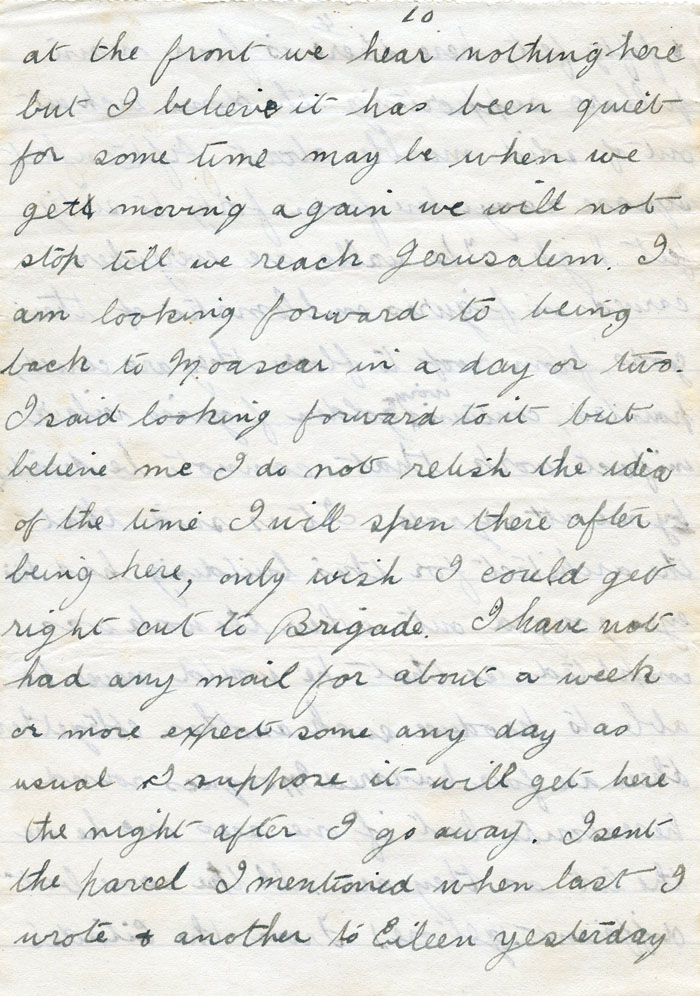 10
at the front we hear nothing here
but I believe it has been quiet
for some time may be when we
get moving again we will not
stop till we reach Jerusalem. I
am looking forward to being
back to Moascar in a day or two.
I said looking forward to it but
believe me I do not relish the idea
of the time I will spen there after
being here, only wish I could get
right out to Brigade. I have not
had any mail for about a week
or more expect some any day as
usual I suppose it will get here
the night after I go away. I sent
the parcel I mentioned when last I
wrote & another to Eileen yesterday